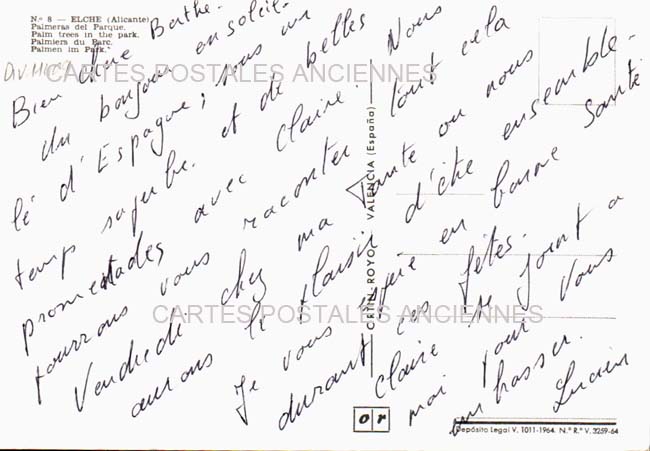 N.º 8 — ELCHE (Alicante)
Palmeras del Parque.
Palm trees in the park.
Palmiers du Parc.
Palmen im Park.
CARTES POSTALES ANCIENNES
Bien chère Berthe.
du bonjour ensoleil-
lé d'Espagne; nous un
temps superbe. et de belles
promenades avec Claire. Nous
pourrons vous raconter tout cela
Vendredi chez ma Tante où nous
aurons le plaisir d'être ensemble.
Je vous espère en bonne santé
durant ces fêtes.
Claire se joint a
moi pour vous
embrasser.
Lucien
CARTES POSTALES ANCIENNES
ORIHUEL ROYO - VALENCIA (España)
or
Depósito Legal V. 1011-1964. N.º R.º V. 3259-64